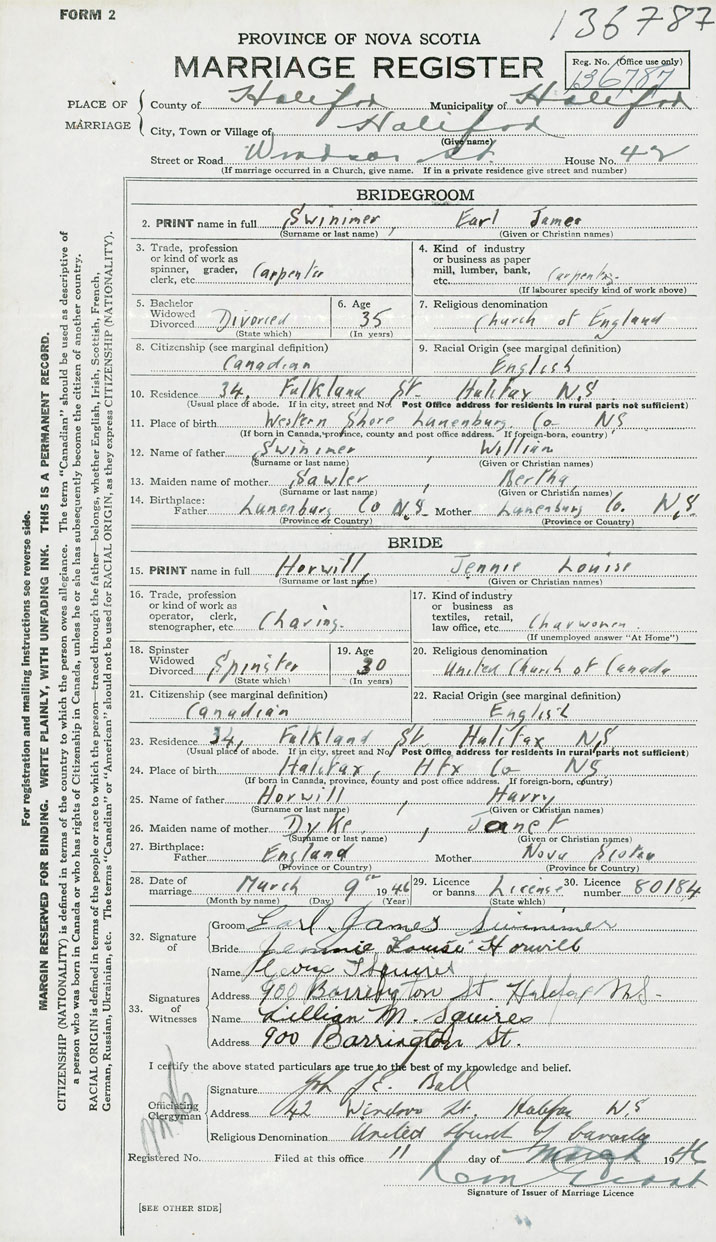 FORM 2
136787
PROVINCE OF NOVA SCOTIA
MARRIAGE REGISTER
Reg. No. (Office use only)
136787
PLACE OF MARRIAGE
County of Halifax Municipality of Halifax
City, Town or Village of Halifax
(Give name)
Street or Road Windsor St. House No. 42
(If marriage occurred in a Church, give name. If in a private residence give street and number)
BRIDEGROOM
2. PRINT name in full Swinimer, Earl James
(Surname or last name) (Given or Christian names)
3. Trade, profession or kind of work as spinner, grader, clerk, etc. Carpenter
4. Kind of industry or business as paper mill, lumber, bank, etc. Carpentry
(If labourer specify kind of work above)
5. Bachelor Widowed Divorced Divorced
(State which)
6. Age 35
(In years)
7. Religious denomination Church of England
8. Citizenship (see marginal definition) Canadian
9. Racial Origin (see marginal definition) English
10. Residence 34, Falkland St. Halifax N.S
(Usual place of abode. If in city, street and No. Post Office address for residents in rural parts not sufficient)
11. Place of birth Western Shore Lunenburg Co NS
(If born in Canada, province, county and post office address. If foreign-born, country)
12. Name of father Swinimer, William
(Surname or last name) (Given or Christian names)
13. Maiden name of mother Sawler, Bertha
(Surname or last name) (Given or Christian names)
14. Birthplace: Father Lunenburg Co N.S. Mother Lunenburg Co. N.S
(Province or Country) (Province or Country)
BRIDE
15. PRINT name in full Horwill, Jennie Louise
(Surname or last name) (Given or Christian names)
16. Trade, profession or kind of work as operator, clerk, stenographer, etc. Charing.
17. Kind of industry or business as textiles, retail, law office, etc. Charwomen
(If unemployed answer "At Home")
18. Spinster Widowed Divorced Spinster
(State which)
19. Age 30
(In years)
20. Religious denomination United Church of Canada
21. Citizenship (see marginal definition) Canadian
22. Racial Origin (see marginal definition) English
23. Residence 34, Falkland St. Halifax N.S
(Usual place of abode. If in city, street and No. Post Office address for residents in rural parts not sufficient)
24. Place of birth Halifax, Hfx Co NS
(If born in Canada, province, county and post office address. If foreign-born, country)
25. Name of father Horwill, Harry
(Surname or last name) (Given or Christian names)
26. Maiden name of mother Dyke, Janet
(Surname or last name) (Given or Christian names)
27. Birthplace: Father England Mother Nova Scotia
(Province or Country) (Province or Country)
28. Date of marriage March 9 1946
(Month by name) (Day) (Year)
29. Licence or banns License
(State which)
30. Licence number 80184
32. Signature of
Groom Earl James Swinimer
Bride Jennie Louise Horwill
33. Signatures of Witnesses
Name Squires
Address 900 Barrington St Halifax N.S.
Name Lillian M. Squires
Address 900 Barrington St.
I certify the above stated particulars are true to the best of my knowledge and belief.
Officiating Clergyman
Signature Ball
Address 42 Windsor St. Halifax N.S
Religious Denomination United Church of Canada
Registered No. Filed at this office 11 day of March 1946
Signature of Issuer of Marriage Licence
[SEE OTHER SIDE]
For registration and mailing instructions see reverse side.
MARGIN RESERVED FOR BINDING. WRITE PLAINLY, WITH UNFADING INK. THIS IS A PERMANENT RECORD.
CITIZENSHIP (NATIONALITY) is defined in terms of the country to which the person owes allegiance. The term "Canadian" should be used as descriptive of
a person who was born in Canada or who has rights of Citizenship in Canada, unless he or she has subsequently become the citizen of another country.
RACIAL ORIGIN is defined in terms of the people or race to which the person—traced through the father—belongs, whether English, Irish, Scottish, French,
German, Russian, Ukrainian, etc. The terms "Canadian" or "American" should not be used for RACIAL ORIGIN, as they express CITIZENSHIP (NATIONALITY).